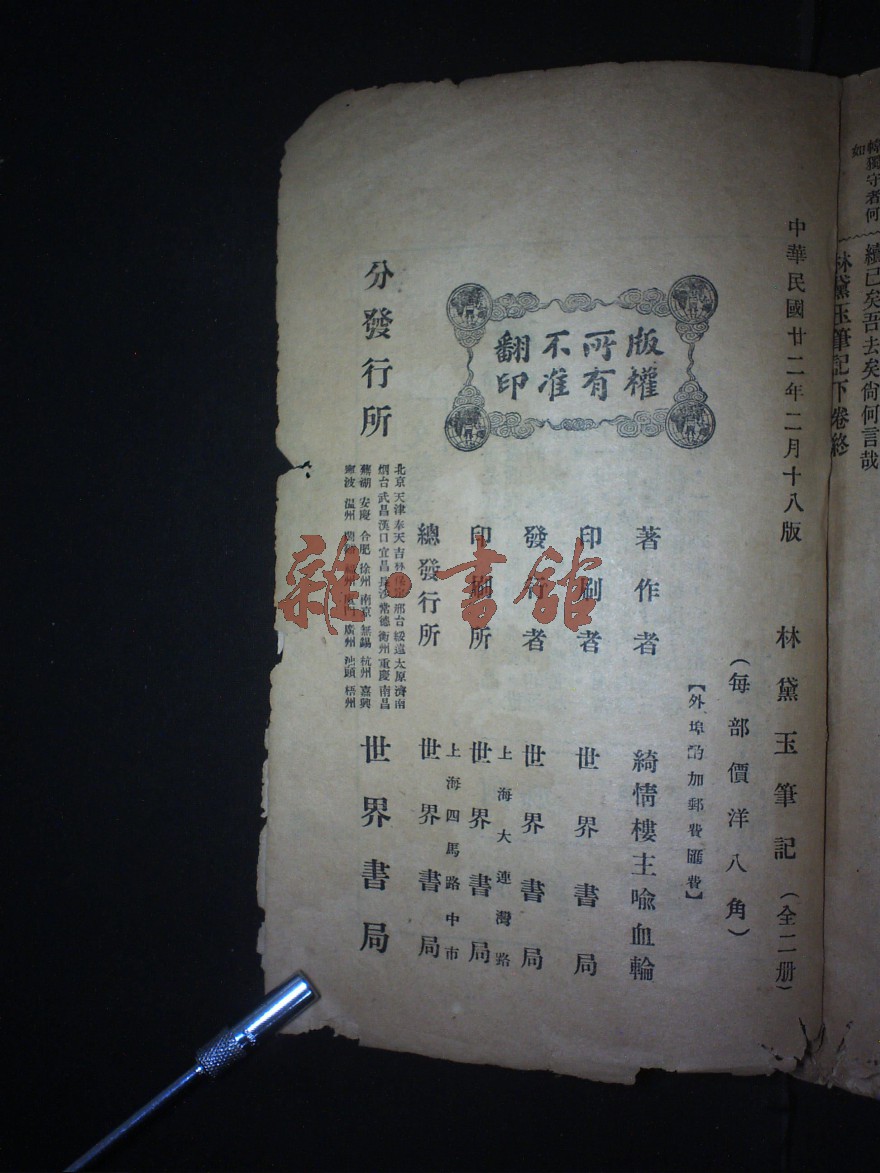 如
韓獨守者何
續已矣吾去矣尙何言哉
林黛玉筆記下卷終
中華民國廿二年二月十八版
林黛玉筆記(全二册)
(每部價洋八角)
【外埠酌加郵費匯費】
版權所有不准翻印
著作者 綺情樓主喩血輪
印刷者 世界書局
發行者 世界書局
上海大連灣路
印刷所 世界書局
上海四馬路中市
總發行所 世界書局
北京 天津 奉天 吉林 邢台 綏遠 太原 濟南
烟台 武昌 漢口 宜昌 長沙 常德 衡州 重慶 南昌
蕪湖 安慶 合肥 徐州 南京 無錫 杭州 嘉興
寧波 溫州 廣州 汕頭 梧州
分發行所 世界書局
雜·書舘